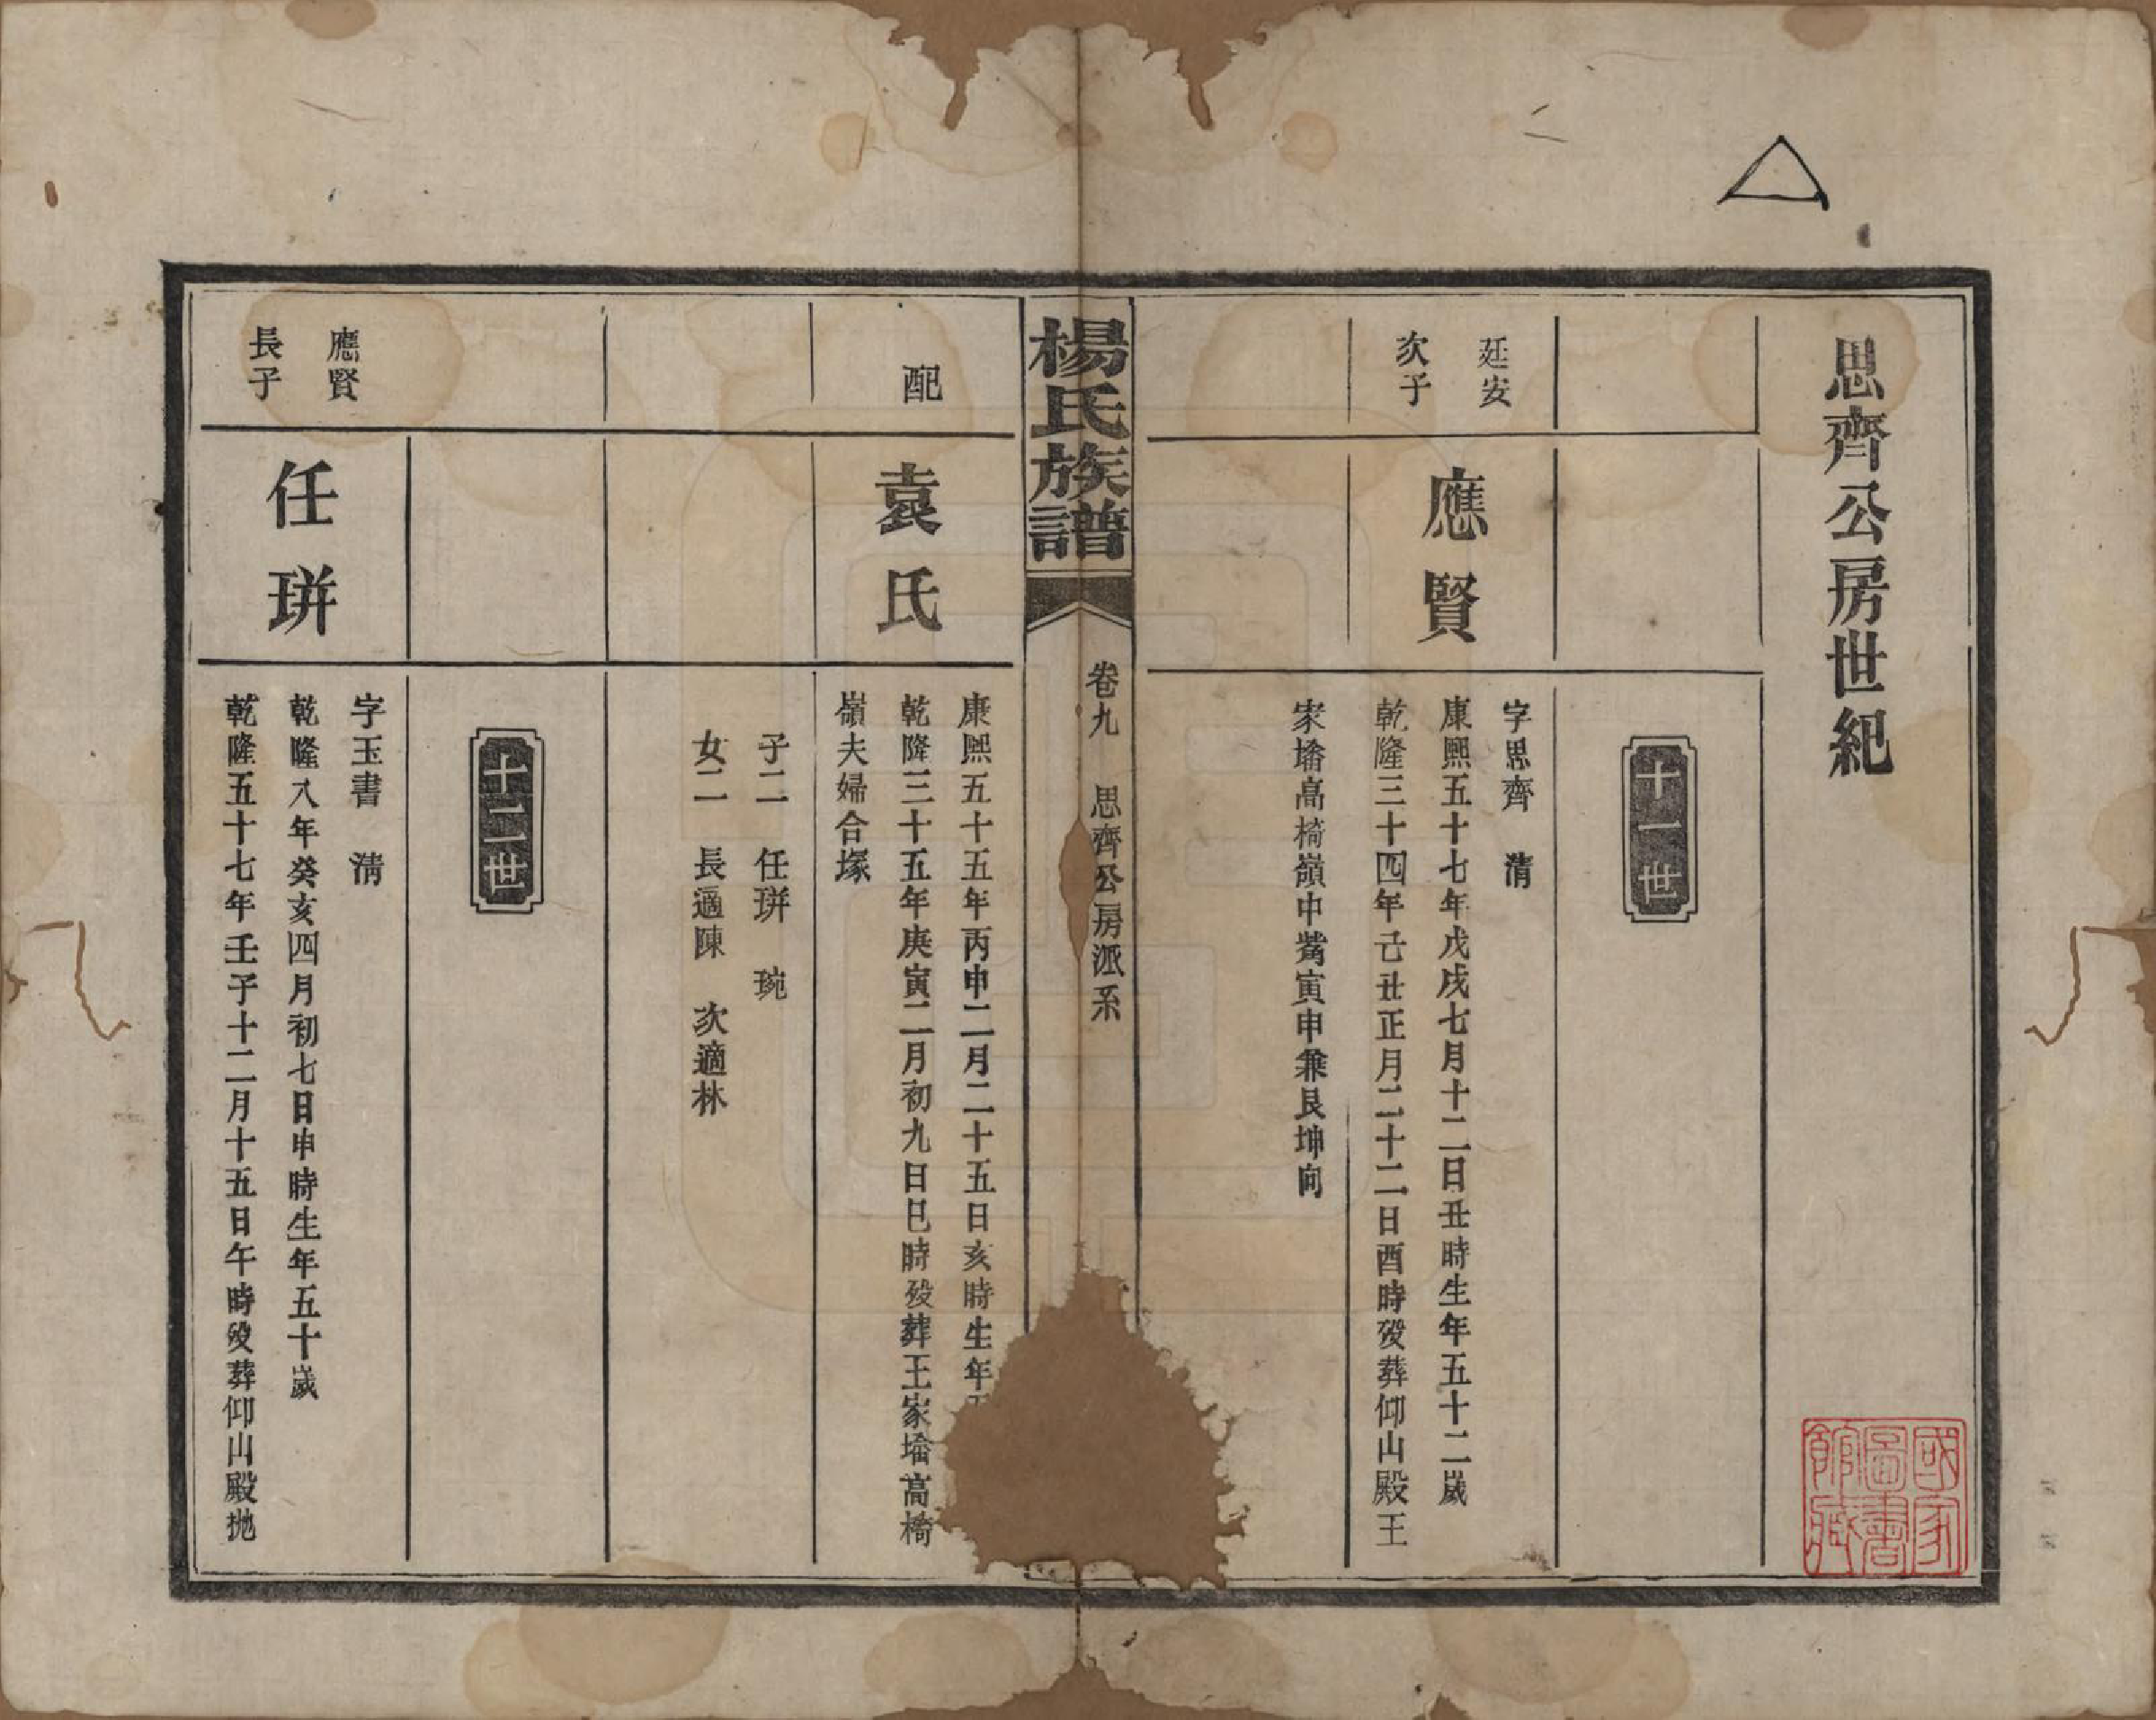 思齊公房世紀
十一世
廷安
次子
應賢
字思齊 清
康熙五十七年戊戌七月十二日丑時生年五十二歲
乾隆三十四年己丑正月二十二日酉時歿葬仰山殿王
家墦高椅嶺中嘴寅申兼艮坤向
楊氏族譜
卷九 思齊公房派系
配
袁氏
康熙五十五年丙申二月二十五日亥時生年五
乾隆三十五年庚寅二月初九日巳時歿葬王家墦高椅
嶺夫婦合塚
子二 任琲 琬
女二 長適陳 次適林
十二世
應賢
長子
任琲
字玉書 清
乾隆八年癸亥四月初七日申時生年五十歲
乾隆五十七年壬子十二月十五日午時歿葬仰山殿拋
國家
圖書
館藏